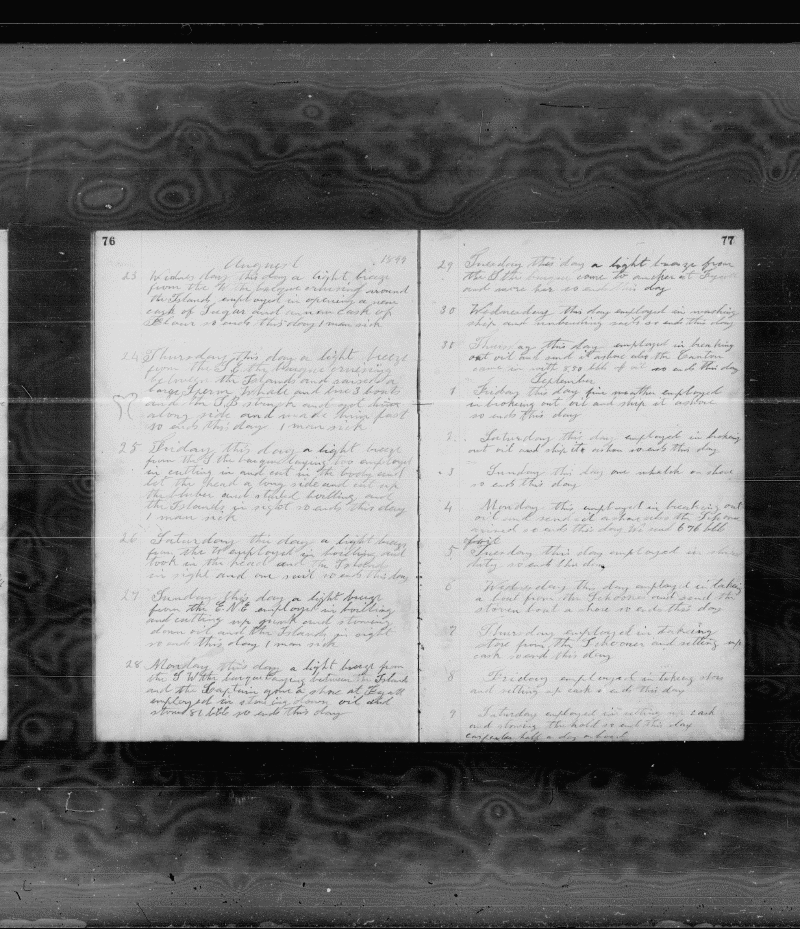 76
August 1899
23 Wednesday this day a light breeze
from the W the barque cruising around
the Islands employed in opening a new
cask of Sugar and a new cask of
Flour so ends this day 1 man sick
24 Thursday this day a light breeze
from the S E the barque cruising
between the Islands and raised a
large Sperm Whale and low 3 boats
and the S B struck and got him
along side and made them fast
so ends this day 1 man sick
25 Friday this day a light breeze
from the the barque laying too employed
in cutting in and cut in the body and
let the head a long side and cut up
the bluber and started boilling and
the Islands in sight so ends this day
1 man sick
26 Saturday this day a light breeze
from the W employed in boilling and
took in the head and the Islands
in sight and one sail so ends this day
27 Sunday this day a light breeze
from the E N E employed in boilling
and cutting up and stowing
down oil and the Islands in sight
so ends this day 1 man sick
28 Monday this day a light breeze from
the S W the barque laying between the Islands
and the Captain gone a shore at Fyall
employed in stowing down oil and
stowed 82 bbls so ends this day
77
29 Tuesday this day a light breeze from
the S the barque came to anker at
and more her so ends this day
30 Wednesday this day employed in washing
ship and unbending sails so ends this day
31 Thursday this day employed in breaking
out oil and send it ashore also the Canton
came in with 550 bbls of oil so ends this day
September
1 Friday this day fine weather employed
in broking out oil and ship it ashore
so ends this day
2 Saturday this day employed in broking
out oil and ship it ashore so ends this day
3 Sunday this day one watch on shore
so ends this day
4 Monday this employed in breaking out
oil and send it ashore also the
arrived so ends this day we send 676 bbls
of oil
5 Tuesday this day employed in
duty so ends this day
6 Wednesday this day employed in taking
a boat from the Schooner and send the
stoven boat a shore so ends this day
7 Thursday employed in taking
store from the Schooner and setting up
cask so ends this day
8 Friday employed in taking store
and setting up cask s ends this day
9 Saturday employed in setting up cask
and stowing the hold so ends this day
carpenter half a day on board